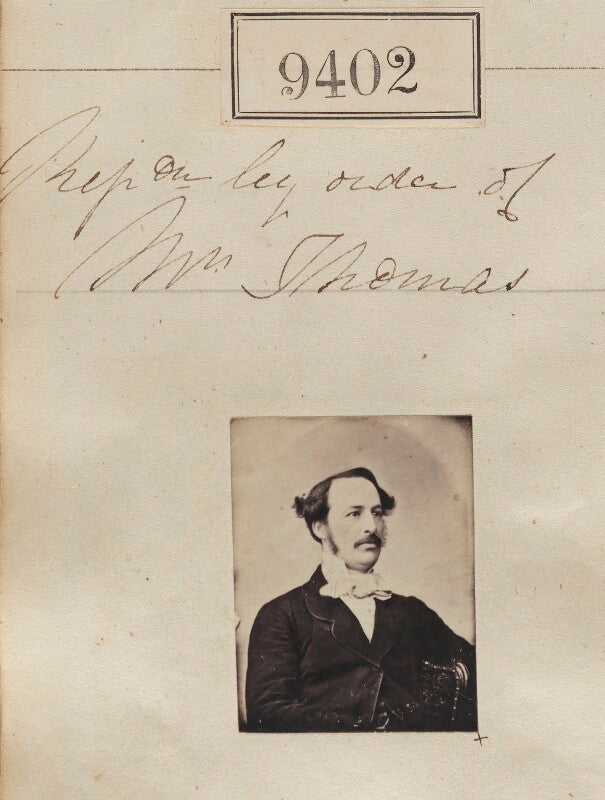 9402
Rep on by order of
Mrs Thomas